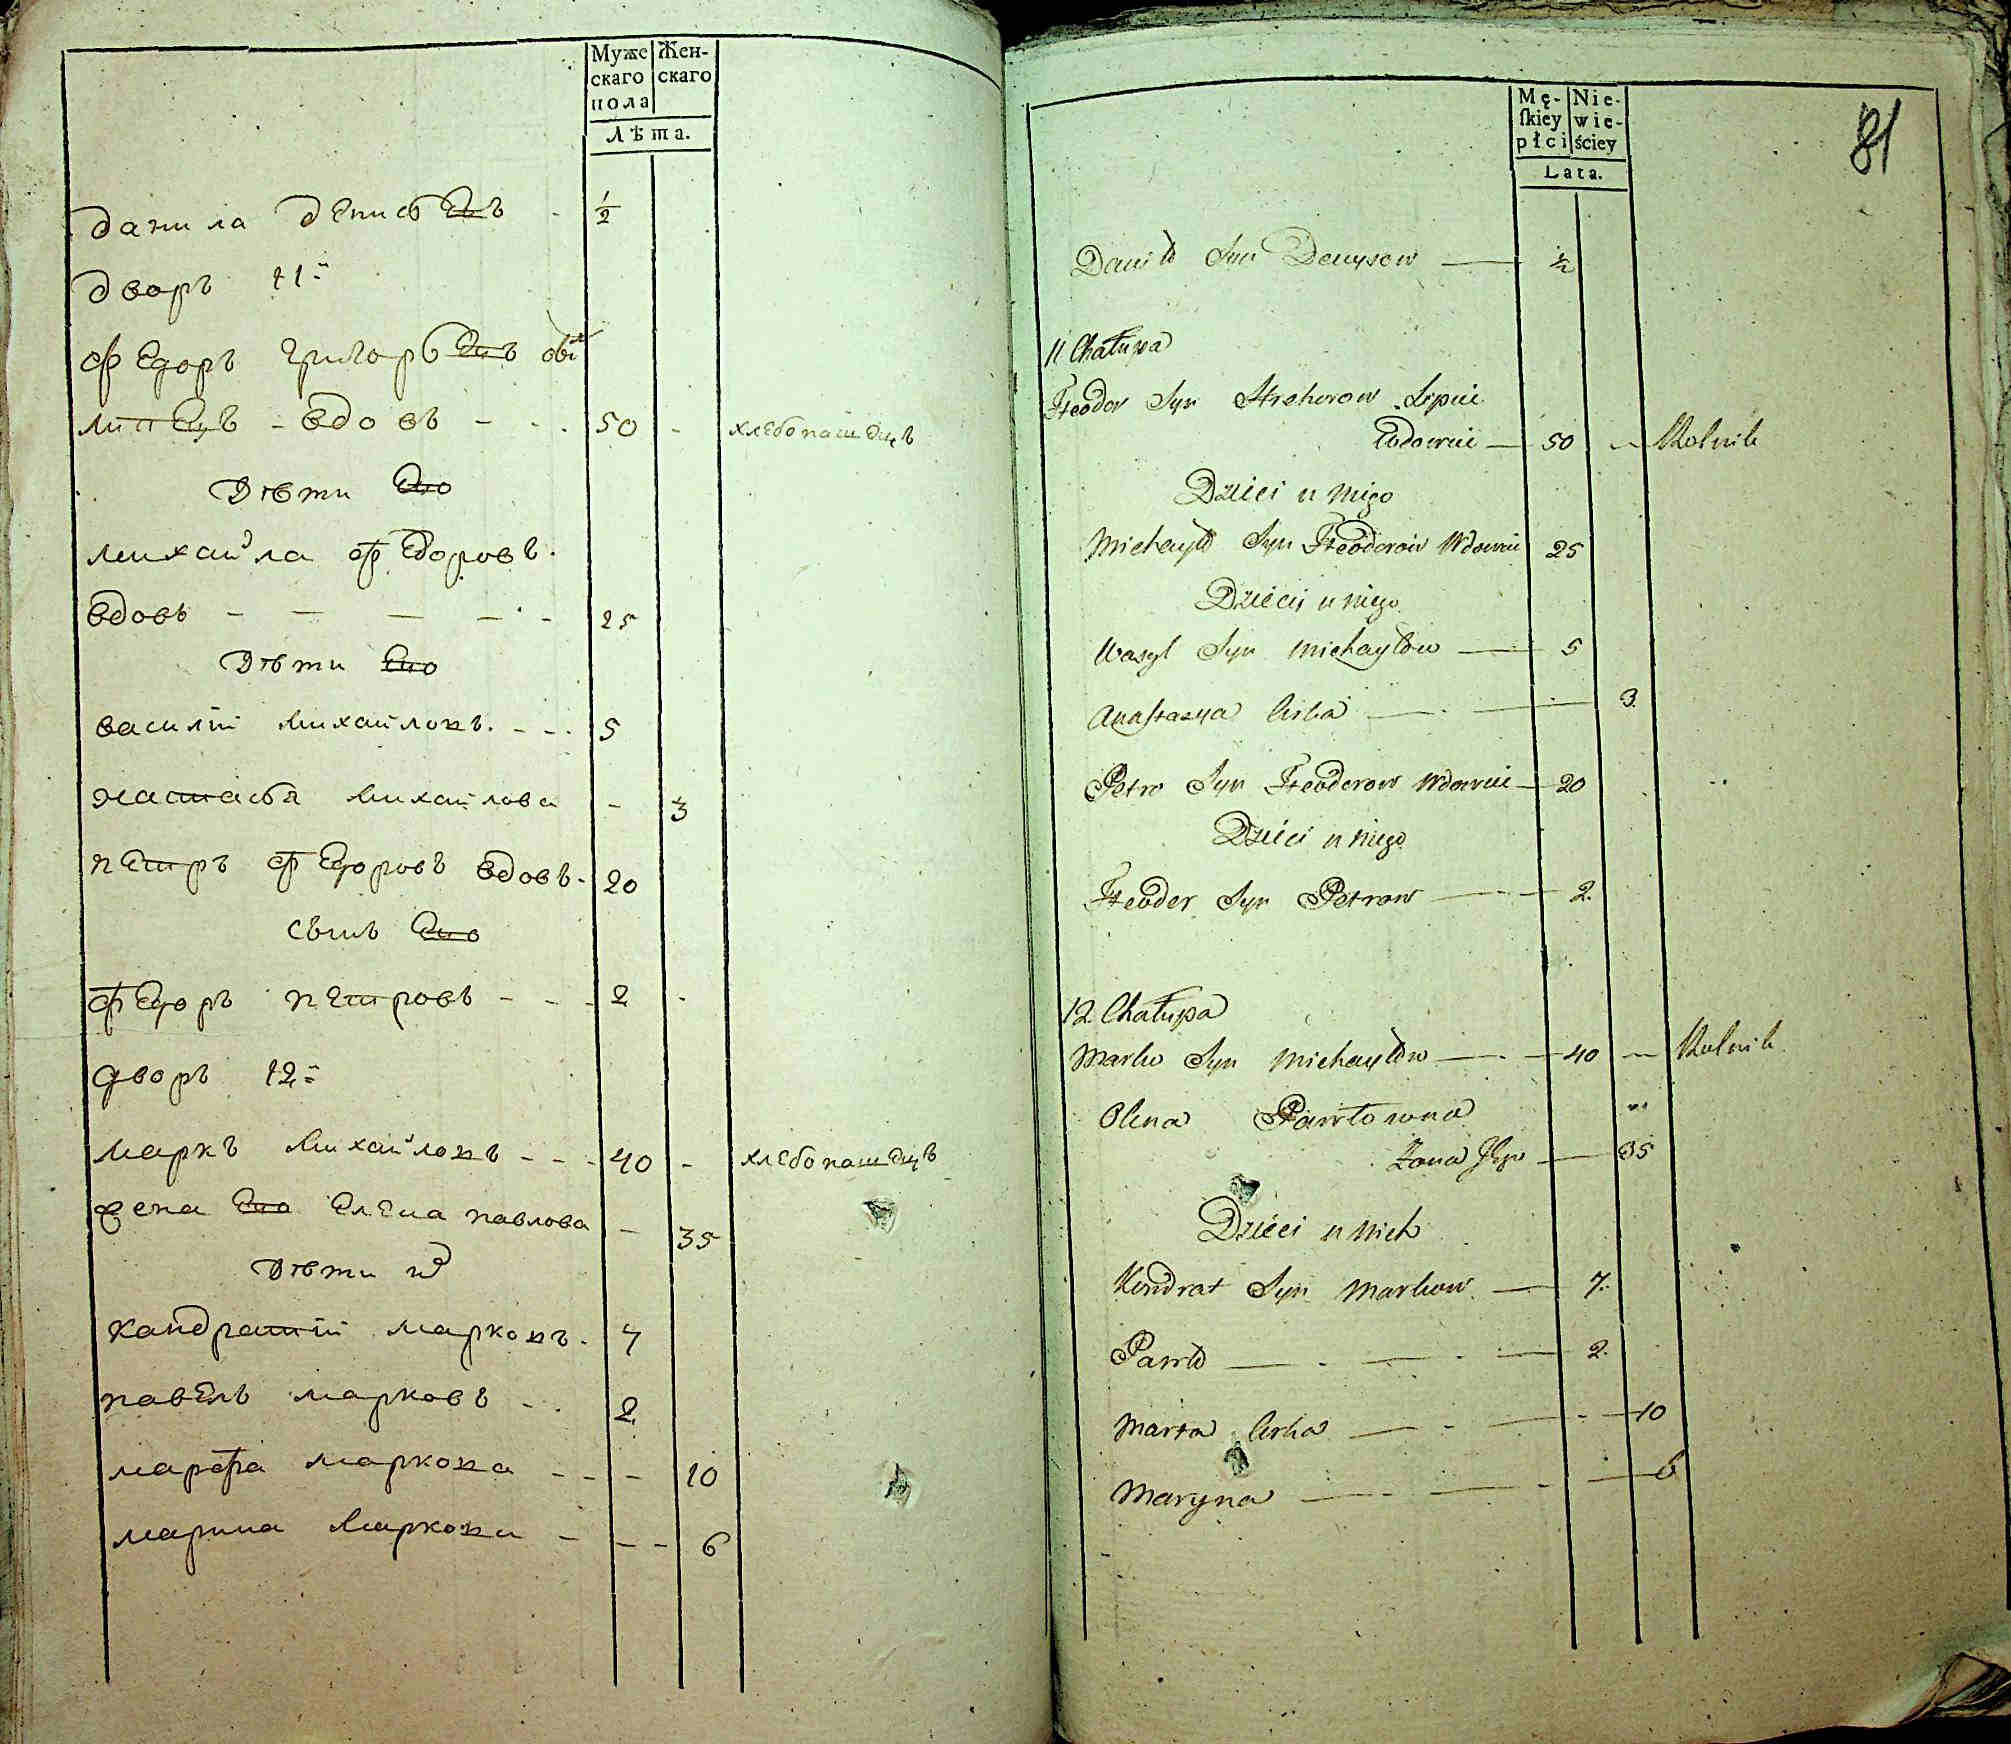 Муже
скаго
пола
Жен-
скаго
Лѣта.
данила денисовъ - ½
дворъ 11й
федоръ григорьевъ
липецъ - вдовъ - - - 50 - хлебопашецъ
Дѣти Его
михайла федоровъ
вдовъ - - - - - 25
Дѣти Его
василій михайловъ - - - 5
настасья михайлова - 3
петръ федоровъ вдовъ - 20
сынъ Его
федоръ петровъ - - - 2 -
дворъ 12й
маркъ михайловъ - - - 40 - хлебопашецъ
жена Его Елена павлова - 35
Дѣти их
кандратій марковъ - 7
павелъ марковъ - - 2
марфа маркова - - - 10
марина маркова - - - 6
81
Mę-
ſkiey
płci
Nie-
wie-
ściey
Lata.
Daniło Syn Denysow — ½
11 Chałupa
Fteodor Syn Hrehorow Lipiec
Wdowiec — 50 — Rolnik
Dzieci u niego
Michayło Syn Fteodorow Wdowiec 25
Dzieci u niego
Wasyl Syn Michayłow — 5
Anastazya Curka — 3
Petro Syn Fteodorow Wdowiec — 20
Dzieci u niego
Fteodor Syn Petrow — 2
12 Chałupa
Marko Syn Michayłow — 40 — Rolnik
Olena Pawłowna
Żona Jego — 35
Dzieci u Nich
Kondrat Syn Markow — 7
Pawło — 2
Marta Curka — 10
Maryna — 6